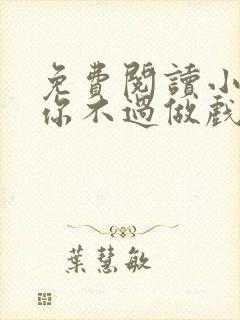 免費閱讀小
你不過做戲
葉慧敏